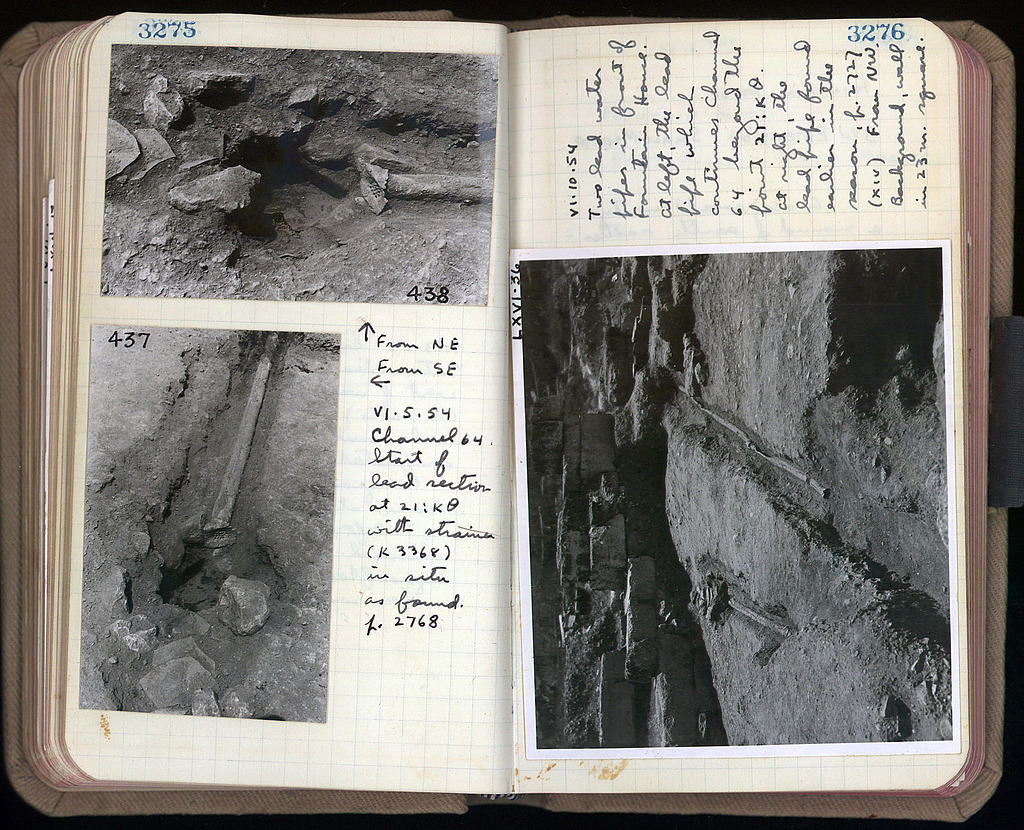 3275
438
437
↑ From NE
From SE
←
VI.5.54
Channel 64.
Start of
lead section
at 21:ΚΘ
with strainer
(K 3368)
in situ
as found.
p. 2768
3276
VI.10.54
Two lead water
pipes in front of
Fountain House.
at left the lead
pipe which
continues Channel
64 beyond the
point 21:ΚΘ.
at right the
lead pipe found
earlier in the
season, p. 2727
(XIV) From NW.
Background, wall
in 23 m. square
LXVI-36